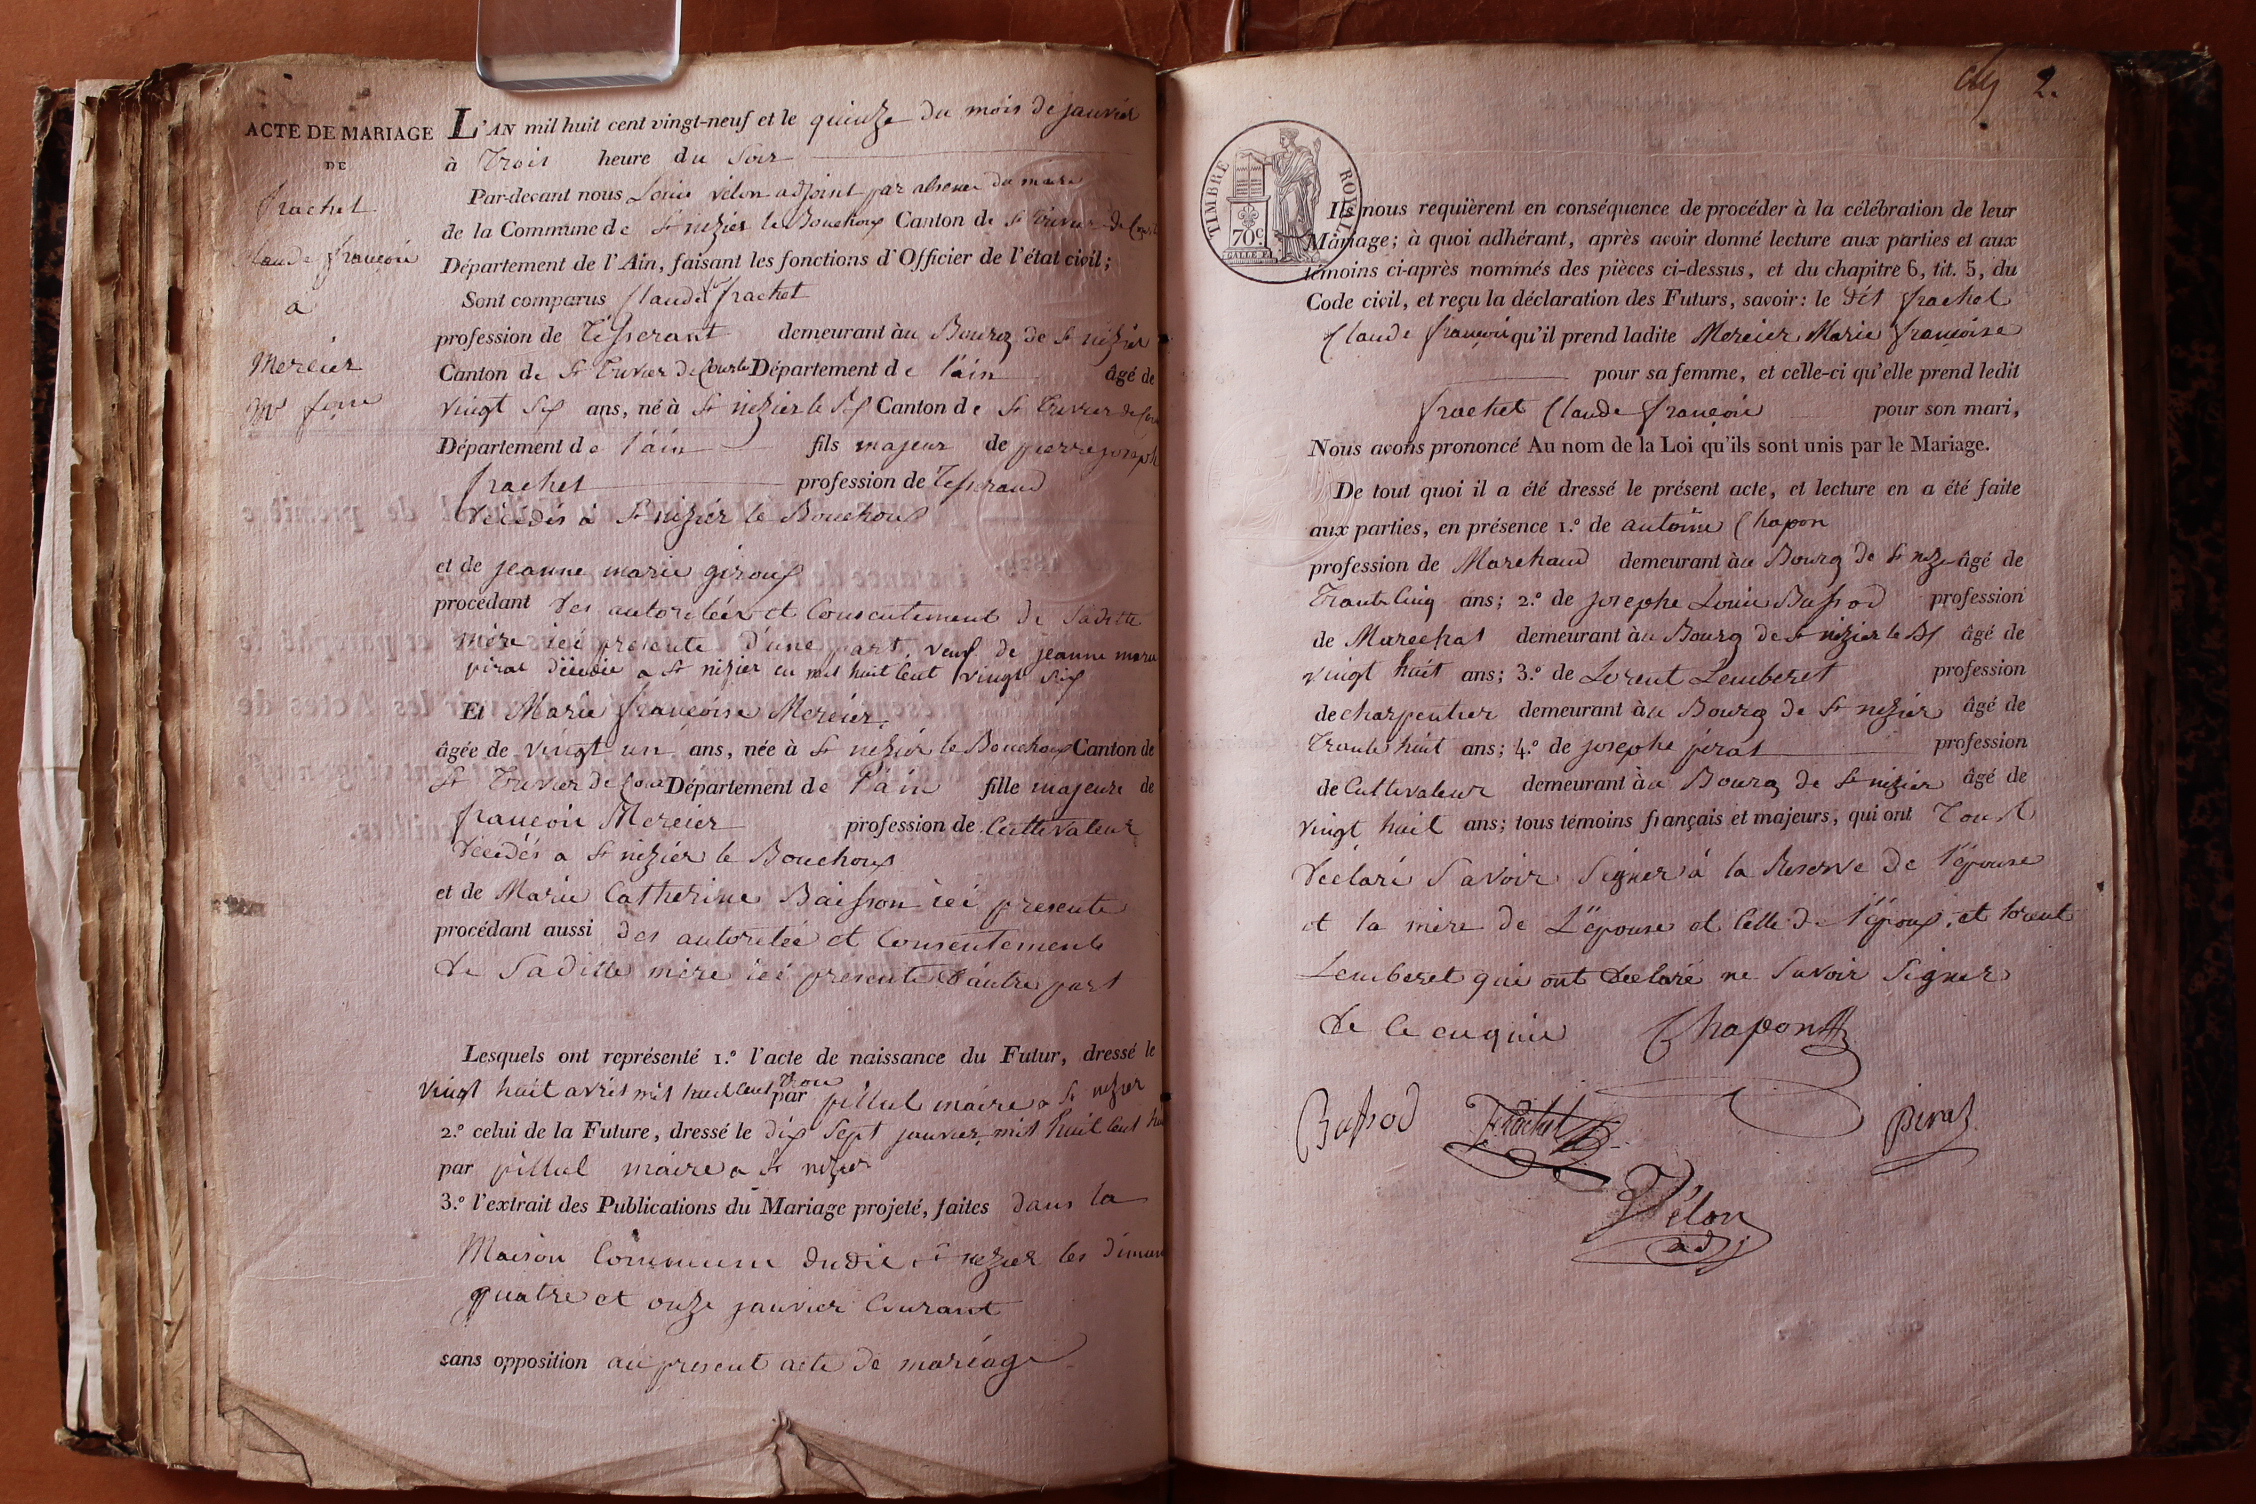 ACTE DE MARIAGE
DE
frachet
Claude françois
a
Mercier
Me fçoise
L'AN mil huit cent vingt-neuf et le quinze du mois de janvier
à Trois heure du Soir
Par-devant nous Louis velon adjoint par absence du maire
de la Commune de St nizier le Bouchoux Canton de St Trivier de Cour
Département de l'Ain, faisant les fonctions d'Officier de l'état civil;
Sont comparus Claude fs frachet
profession de Tisserant demeurant àu Bourg de St nizier
Canton de St Trivier de Courte Département de l'ain âgé de
vingt Six ans, né à St nizier le Bx Canton de St Trivier de Cour
Département de l'ain fils majeur de pierre joseph
frachet profession de Tisserand
décédés à St nizier le Bouchoux
et de jeanne marie giroux
procédant des autoritées et Consentement de Saditte
mère ici presente d'une part, veuf de jeanne marie
pirat décédée a St nizier en mil huit Cent vingt Six
Et Marie françoise Mercier
âgée de vingt un ans, née à St nizier le Bouchoux Canton de
St Trivier de Cour Département de l'ain fille majeure de
françois Mercier profession de Cultivateur
décédés a St nizier le Bouchoux
et de Marie Catherine Baisson ici presente
procédant aussi des autoritée et Consentement
de Saditte mère ici presente d'autre part
Lesquels ont représenté 1.º l'acte de naissance du Futur, dressé le
vingt huit avril mil huit Cent trois par pillul maire a St nizier
2.º celui de la Future, dressé le dix Sept janvier mil huit Cent hu
par pillul maire a St nizier
3.º l'extrait des Publications du Mariage projeté, faites dans la
Maison Commune dudit St nizier les diman
quatre et onze janvier Courant
sans opposition au present acte de mariage
2.
TIMBRE ROYAL
70c
Ils nous requièrent en conséquence de procéder à la célébration de leur
Mariage; à quoi adhérant, après avoir donné lecture aux parties et aux
témoins ci-après nommés des pièces ci-dessus, et du chapitre 6, tit. 5, du
Code civil, et reçu la déclaration des Futurs, savoir: le dit frachet
Claude françois qu'il prend ladite Mercier Marie françoise
pour sa femme, et celle-ci qu'elle prend ledit
frachet Claude françois pour son mari,
Nous avons prononcé Au nom de la Loi qu'ils sont unis par le Mariage.
De tout quoi il a été dressé le présent acte, et lecture en a été faite
aux parties, en présence 1.º de antoine Chapon
profession de Marchand demeurant àu Bourg de St niz âgé de
Trante Cinq ans; 2.º de josephe Louis Bassod profession
de Marechal demeurant àu Bourg de St nizier le Bx âgé de
vingt huit ans; 3.º de Lorent Lemberet profession
de charpentier demeurant àu Bourg de St nizier âgé de
Trante huit ans; 4.º de josephe pirat profession
de Cultivateur demeurant àu Bourg de St nizier âgé de
vingt huit ans; tous témoins français et majeurs, qui ont Tous
déclaré Savoir Signer à la Reserve de l'épouse
et la mère de L'épouse et Celle de l'époux, et lorent
Lemberet qui ont declaré ne Savoir Signer
de Ce enquis Chapon
Bassod frachet Piraz
Vélon
adj